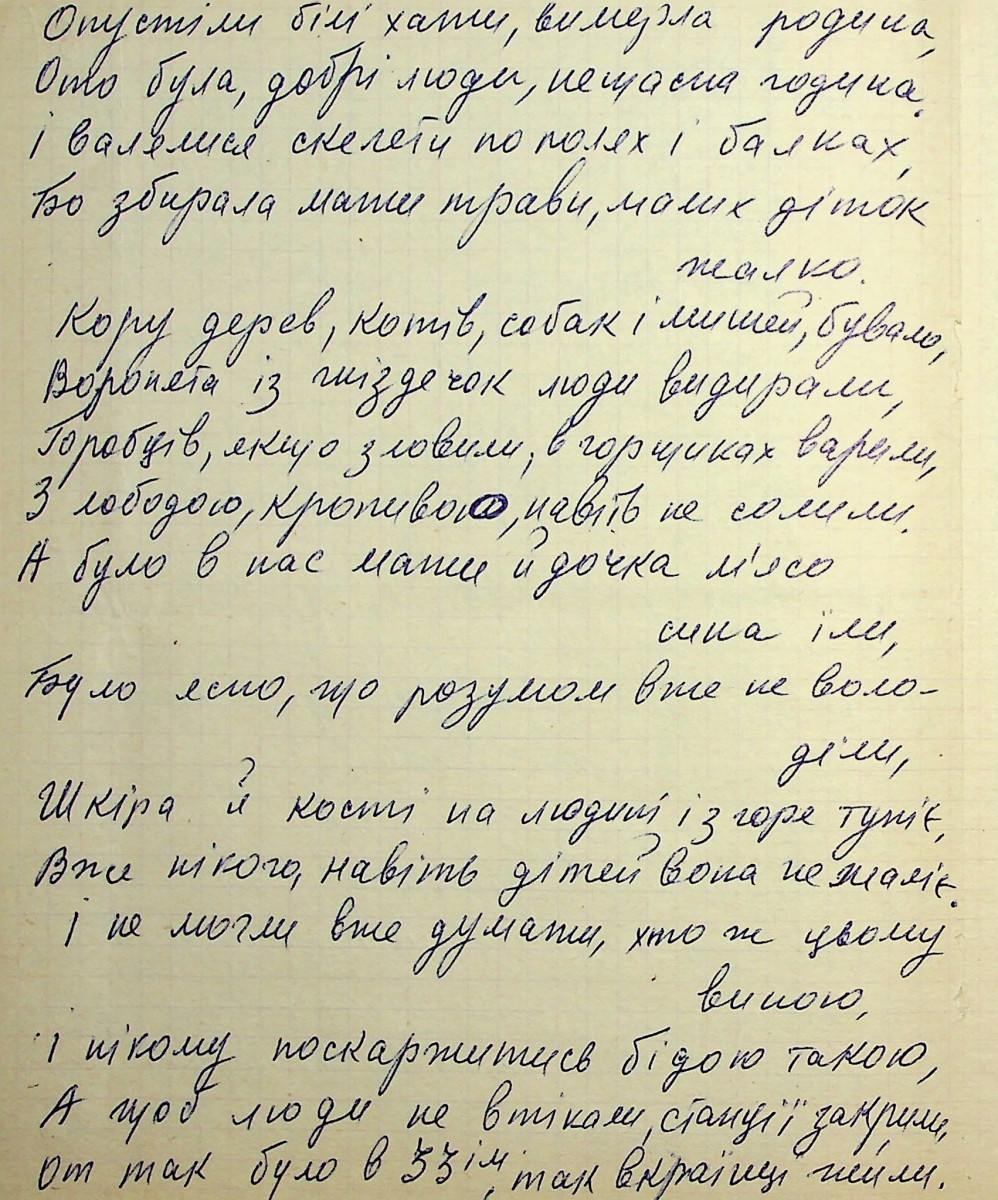 Опустіли білі хати, вимерла родина,
Ото була, добрі люди, нещасна година.
І валялися скелети по полях і балках,
Бо збирала мати трави, малих діток
жалко.
Кору дерев, котів, собак і мишей, бувало,
Воронята із гніздечок люди видирали,
Горобців, якщо зловили, в горщиках варили,
З лободою, кропивою, навіть не солили.
А було в нас мати й дочка м'ясо
сина їли,
Було ясно, що розумом вже не воло-
діли,
Шкіра й кості на людині із горе тупіє,
Вже нікого, навіть дітей вона не жаліє.
І не могли вже думати, хто ж цьому
виною,
І нікому поскаржитись бідою такою,
А щоб люди не втікали, станції закрили,
От так було в 33ім, так вкраїнці жили.